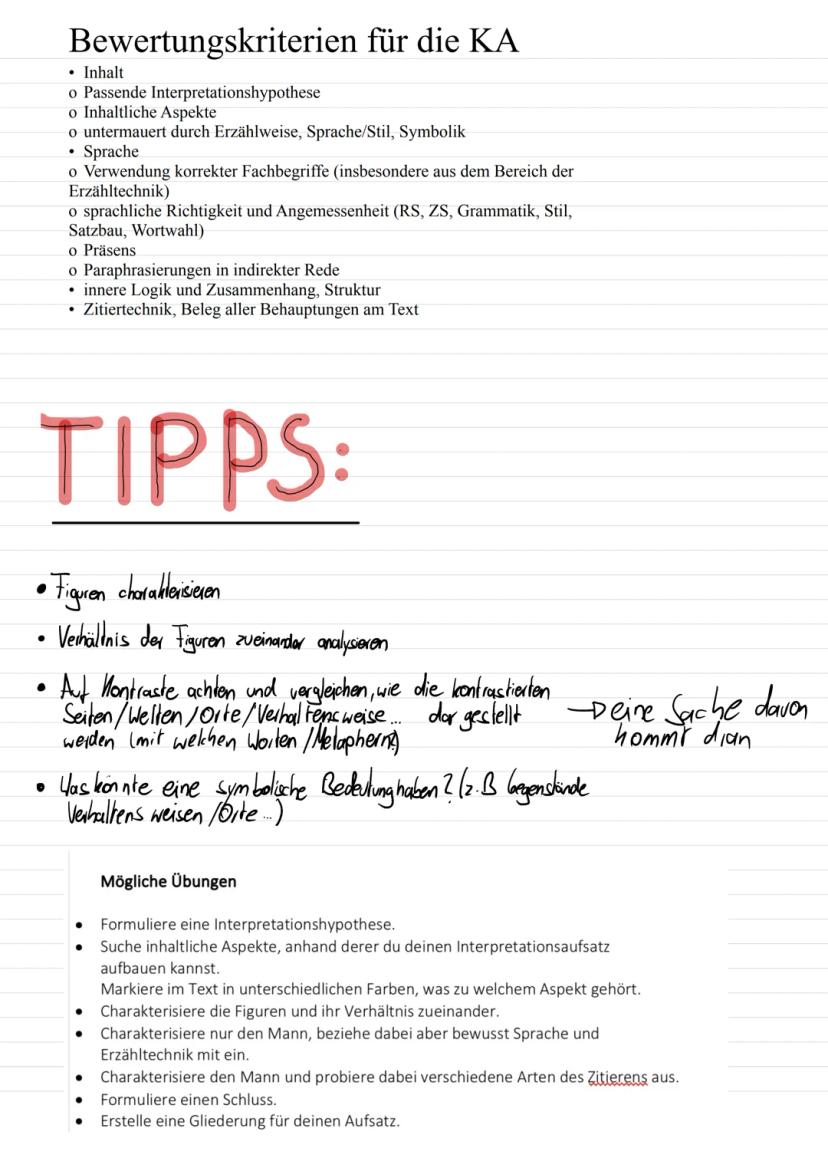 Bewertungskriterien für die KA
• Inhalt
o Passende Interpretationshypothese
o Inhaltliche Aspekte
o untermauert durch Erzählweise, Sprache/Stil, Symbolik
• Sprache
o Verwendung korrekter Fachbegriffe (insbesondere aus dem Bereich der
Erzähltechnik)
o sprachliche Richtigkeit und Angemessenheit (RS, ZS, Grammatik, Stil,
Satzbau, Wortwahl)
o Präsens
o Paraphrasierungen in indirekter Rede
• innere Logik und Zusammenhang, Struktur
• Zitiertechnik, Beleg aller Behauptungen am Text
TIPPS:
• Figuren charakterisieren
• Verhältnis der Figuren zueinander analysieren
• Auf Kontraste achten und vergleichen, wie die kontrastierten
Seiten/Welten/Orte/Verhaltensweise... dargestellt
werden (mit welchen Worten/Metaphern)
→ eine Sache davon
kommt dran
• Was könnte eine symbolische Bedeutung haben? (z.B Gegenstände
Verhaltensweisen/Orte...)
Mögliche Übungen
• Formuliere eine Interpretationshypothese.
• Suche inhaltliche Aspekte, anhand derer du deinen Interpretationsaufsatz
aufbauen kannst.
Markiere im Text in unterschiedlichen Farben, was zu welchem Aspekt gehört.
• Charakterisiere die Figuren und ihr Verhältnis zueinander.
• Charakterisiere nur den Mann, beziehe dabei aber bewusst Sprache und
Erzähltechnik mit ein.
• Charakterisiere den Mann und probiere dabei verschiedene Arten des Zitierens aus.
• Formuliere einen Schluss.
• Erstelle eine Gliederung für deinen Aufsatz.